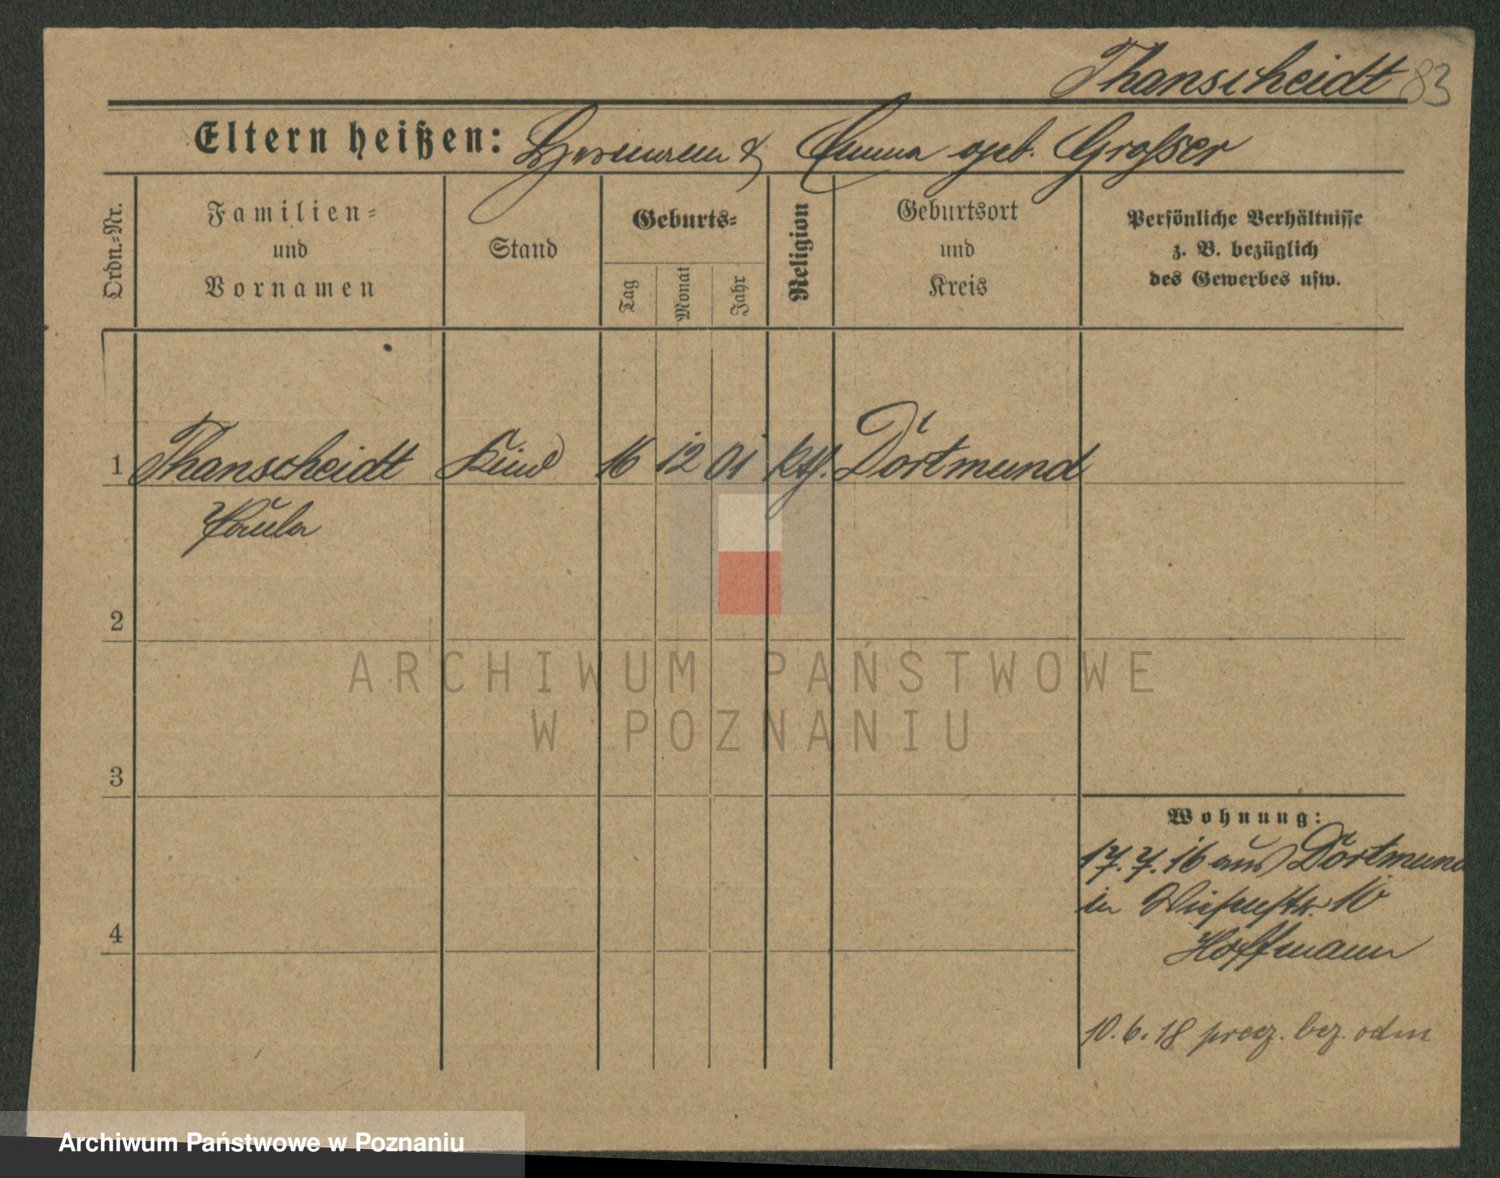 Thanscheidt 83
Eltern heißen: Hermann & Emma geb. Großer
Ordn.-Nr.
Familien-
und
Vornamen
Stand
Geburts-
Tag
Monat
Jahr
Religion
Geburtsort
und
Kreis
Persönliche Verhältnisse
z. B. bezüglich
des Gewerbes usw.
1 Thanscheidt Kind 16 12 01 kth. Dortmund
Paula
2
3
4
Wohnung:
17.7.16 aus Dortmund
in Wiesenstr. 10
Hoffmann
10.6.18 precz. bez odm
ARCHIWUM PAŃSTWOWE
W POZNANIU
Archiwum Państwowe w Poznaniu